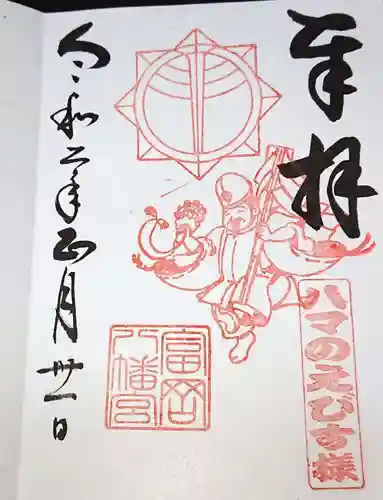 奉拝
ハマのえびす様
富岡
八幡宮
令和二年正月卅一日